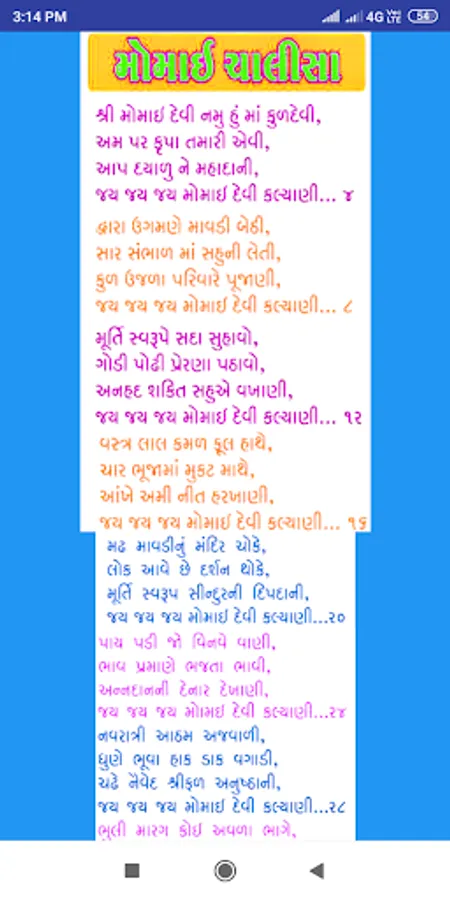 3:14 PM
4G Vo) LTE 54
મોમાઈ ચાલીસા
શ્રી મોમાઇ દેવી નમુ હું માં કુળદેવી,
અમ પર કૃપા તમારી એવી,
આપ દયાળુ ને મહાદાની,
જય જય જય મોમાઇ દેવી કલ્યાણી... ૪
દ્વારા ઉગમણે માવડી બેઠી,
સાર સંભાળ માં સહુની લેતી,
કુળ ઉજળા પરિવારે પૂજાણી,
જય જય જય મોમાઇ દેવી કલ્યાણી... ૮
મૂર્તિ સ્વરૂપે સદા સુહાવો,
ગોડી પોઢી પ્રેરણા પઠાવો,
અનહદ શકિત સહુએ વખાણી,
જય જય જય મોમાઇ દેવી કલ્યાણી... ૧૨
વસ્ત્ર લાલ કમળ ફૂલ હાથે,
ચાર ભૂજામાં મુકટ માથે,
આંખે અમી નીત હરખાણી,
જય જય જય મોમાઇ દેવી કલ્યાણી... ૧૬
મઢ માવડીનું મંદિર ચોકે,
લોક આવે છે દર્શન થોકે,
મૂર્તિ સ્વરૂપ સીન્દુરની દિપદાની,
જય જય જય મોમાઇ દેવી કલ્યાણી...૨૦
પાય પડી જો વિનવે વાણી,
ભાવ પ્રમાણે ભજતા ભાવી,
અન્નદાનની દેનાર દેખાણી,
જય જય જય મોામઇ દેવી કલ્યાણી...૨૪
નવરાત્રી આઠમ અજવાળી,
ધુણે ભૂવા હાક ડાક વગાડી,
ચઢે નૈવેદ શ્રીફળ અનુષ્ઠાની,
જય જય જય મોમાઇ દેવી કલ્યાણી...૨૮
ભુલી મારગ કોઇ અવળા ભાગે,